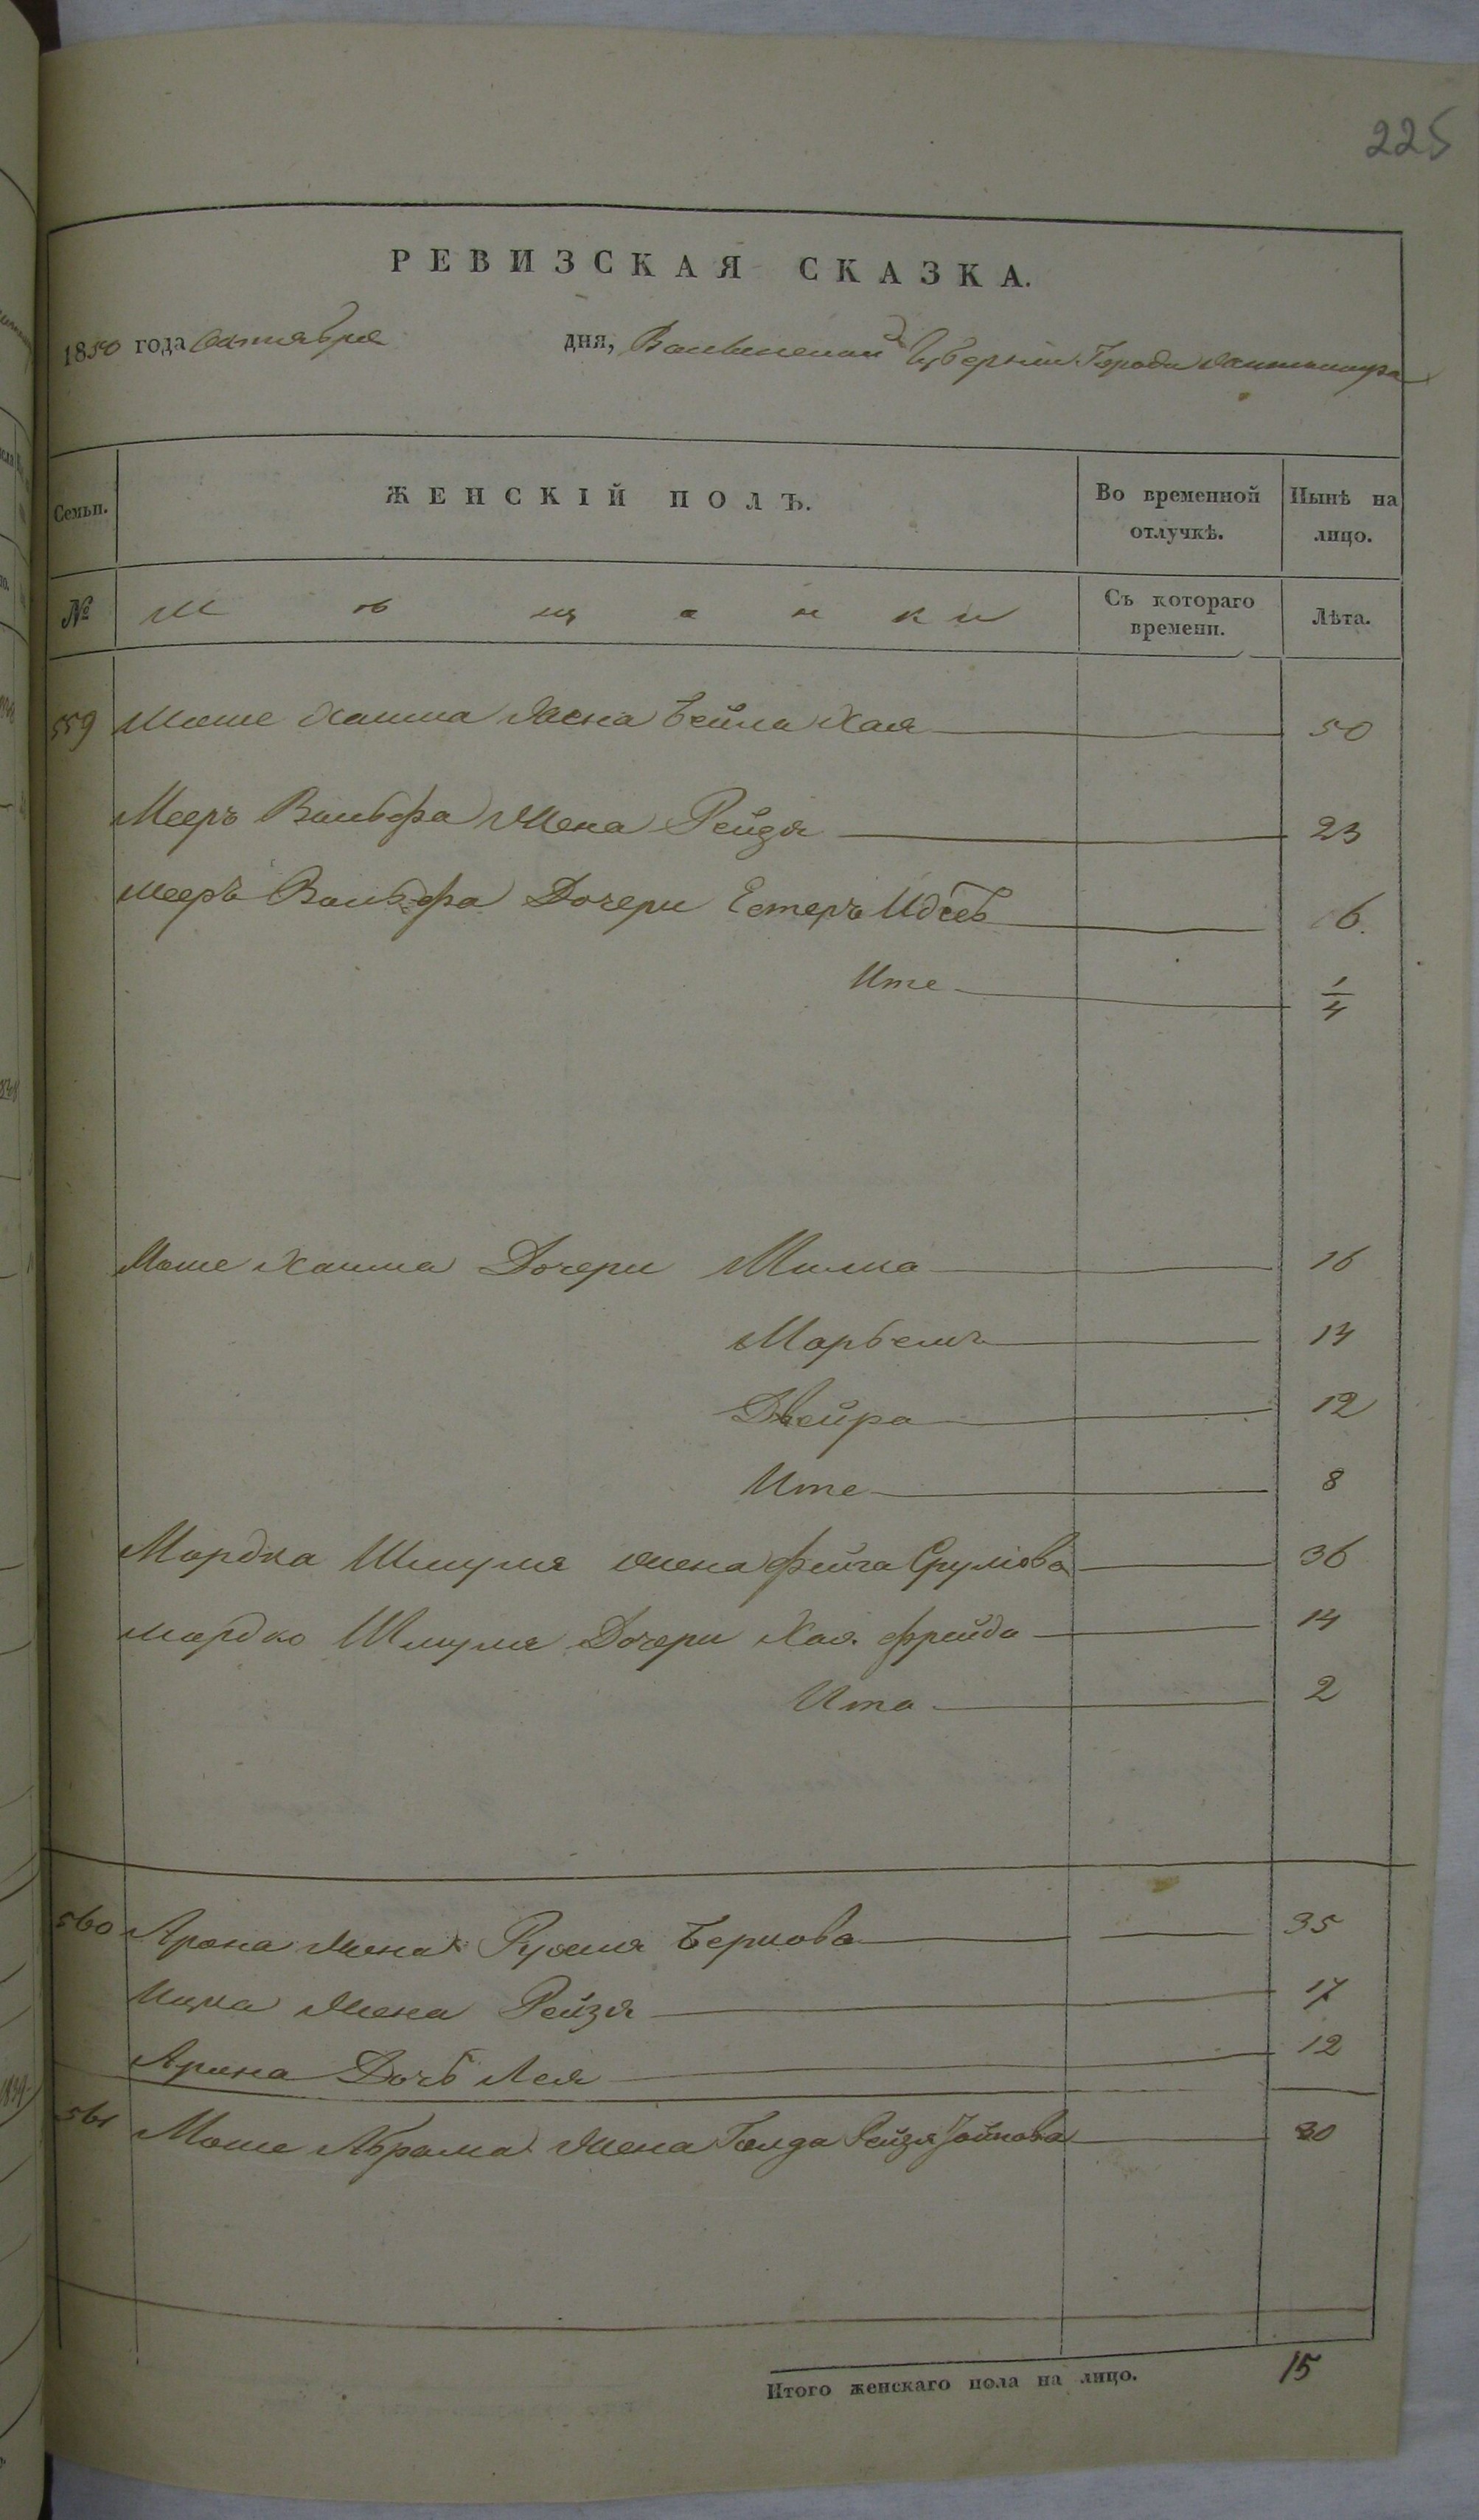 225
РЕВИЗСКАЯ СКАЗКА.
1850 года Октября дня, Волынской Губернии Города Житомира
Семьи. ЖЕНСКІЙ ПОЛЪ. Во временной отлучкѣ. Нынѣ на лицо.
№ Мѣщанки Съ котораго времени. Лѣта.
559 Моше Хаима Жена Бейла Хая 50
Мееръ Вольфа Жена Рейзя 23
Мееръ Вольфа Дочери Естеръ 6
Ите 1/4
Моше Хаима Дочери Милка 16
Марьемъ 14
Двейра 12
Ите 8
Мордка Шмуля жена Фейга Срулова 36
Мордко Шмуля Дочери Хая Фрейда 14
Ита 2
560 Арона Жена Рухля Беркова 35
Ицка Жена Рейзя 17
Арона Дочь Лея 12
561 Моше Абрама Жена Голда Рейзя 30
Итого женскаго пола на лицо. 15